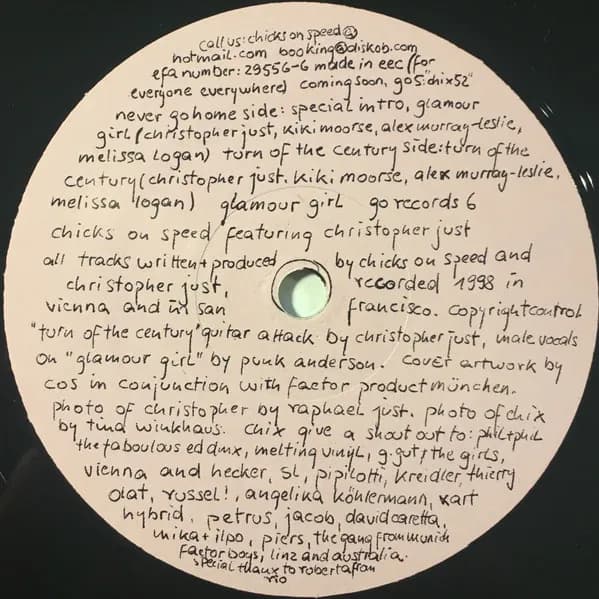 call us: chicks on speed@
hotmail.com booking@diskob.com
efa number: 29556-6 made in eec (for
everyone everywhere) coming soon, go5: "chix52"
never go home side: special intro, glamour
girl (christopher just, kiki moorse, alex murray-leslie,
melissa logan) turn of the century side: turn of the
century (christopher just. kiki moorse, alex murray-leslie.
melissa logan) glamour girl go records 6
chicks on speed featuring christopher just
all tracks written+produced by chicks on speed and
christopher just, recorded 1998 in
vienna and in san francisco. copyrightcontrol
"turn of the century" guitar attack by christopher just, male vocals
on "glamour girl" by punk anderson. cover artwork by
cos in conjunction with factor product münchen.
photo of christopher by raphael just. photo of chix
by tina winkhaus. chix give a shout out to: phil+phil
the faboulous ed dmx, melting vinyl, g.gut, the girls,
vienna and hecker, SL, pipilotti, kreidler, thierry
olat, russel!, angelika köhlermann, kart
hybrid, petrus, jacob, david caretta,
mika + ilpo, piers, the gang from munich
factor boys, linz and australia.
special thanx to roberta from
rio